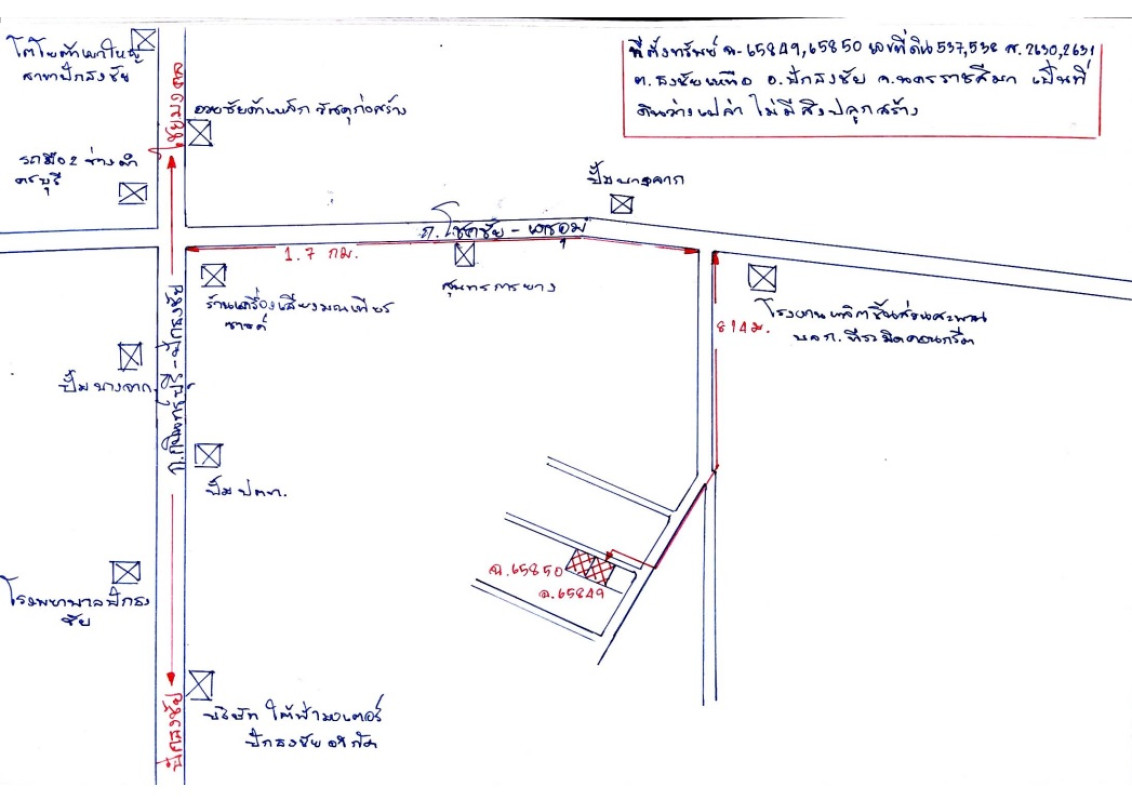 ที่ตั้งทรัพย์ ฉ.65849,65850 เลขที่ดิน 537,538 ส.2630,2631
ต.ธงชัยเหนือ อ.ปักธงชัย จ.นครราชสีมา เป็นที่
ดินว่างเปล่า ไม่มีสิ่งปลูกสร้าง
โตโยต้าเขาใหญ่
สาขาปักธงชัย
ไชยมงคล
อวยชัยค้าเหล็ก วัสดุก่อสร้าง
รถมือ 2 ช่างดำ
ปั๊มบางจาก
ถ.โชคชัย - เดชอุดม
1.7 กม.
สุนทรการยาง
ร้านเครื่องเสียงมณเฑียร
ซาวด์
โรงงานผลิตชิ้นส่วนสะพาน
814 ม.
ปั๊มบางจาก
ถ.กบินทร์บุรี - ปักธงชัย
ปั๊ม ปตท.
ฉ.65850
ฉ.65849
โรงพยาบาลปักธง
ชัย
ปักธงชัย
บริษัท ใต้ฟ้ามอเตอร์
ปักธงชัย จำกัด